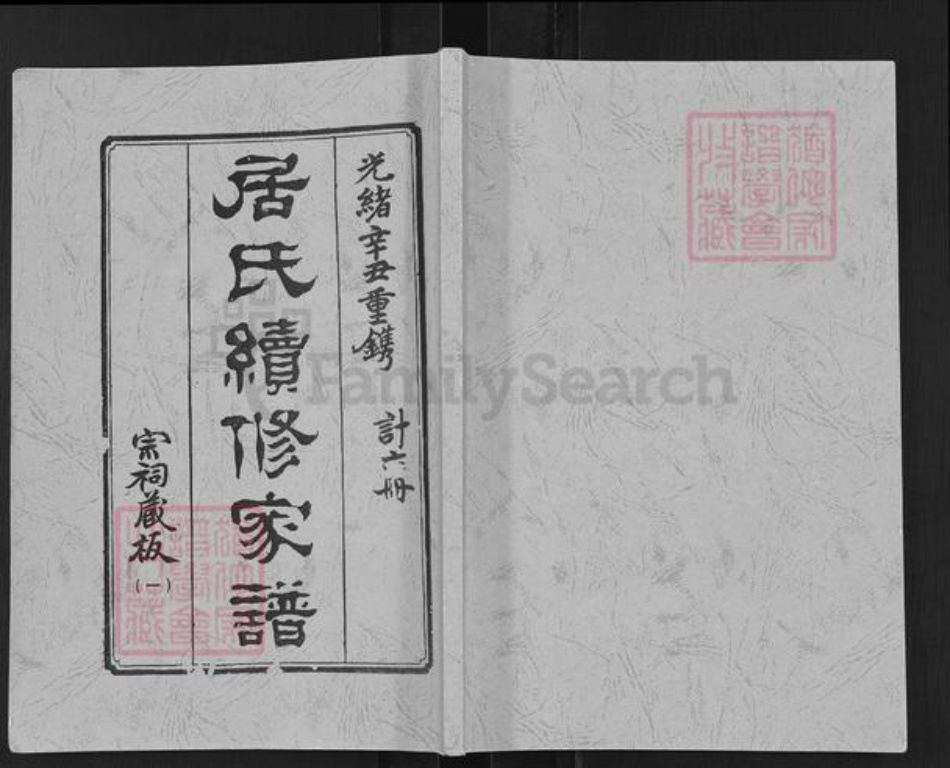 光緒辛丑重鐫 計六冊
居氏續修家譜
宗祠藏板
(一)
FamilySearch
譜學會
收藏